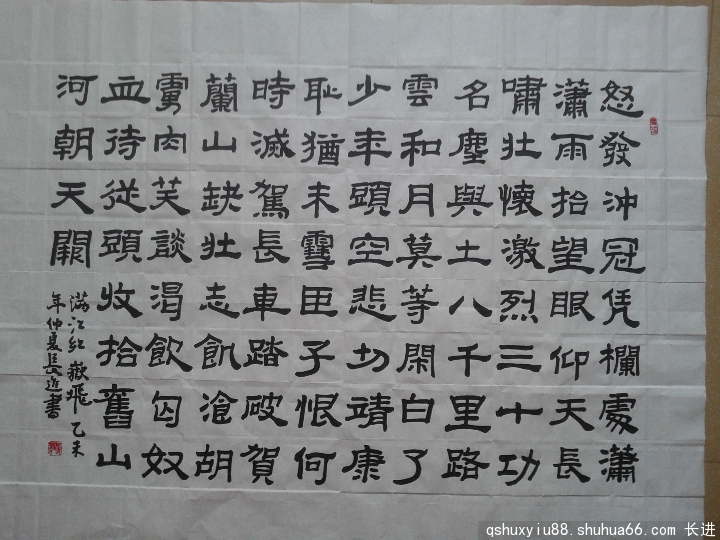 怒發沖冠凭欄處瀟
瀟雨抬望眼仰天長
嘯壯懷激烈三十功
名塵與土八千里路
雲和月莫等閑白了
少年頭空悲切靖康
恥猶未雪臣子恨何
時滅駕長車踏破賀
蘭山缺壯志飢滄胡
虜肉笑談渴飲匈奴
血待從頭收拾舊山
河朝天闕
滿江紅 嶽飛 乙未
年仲夏長進書
qshuxyiu88.shuhua66.com 长进